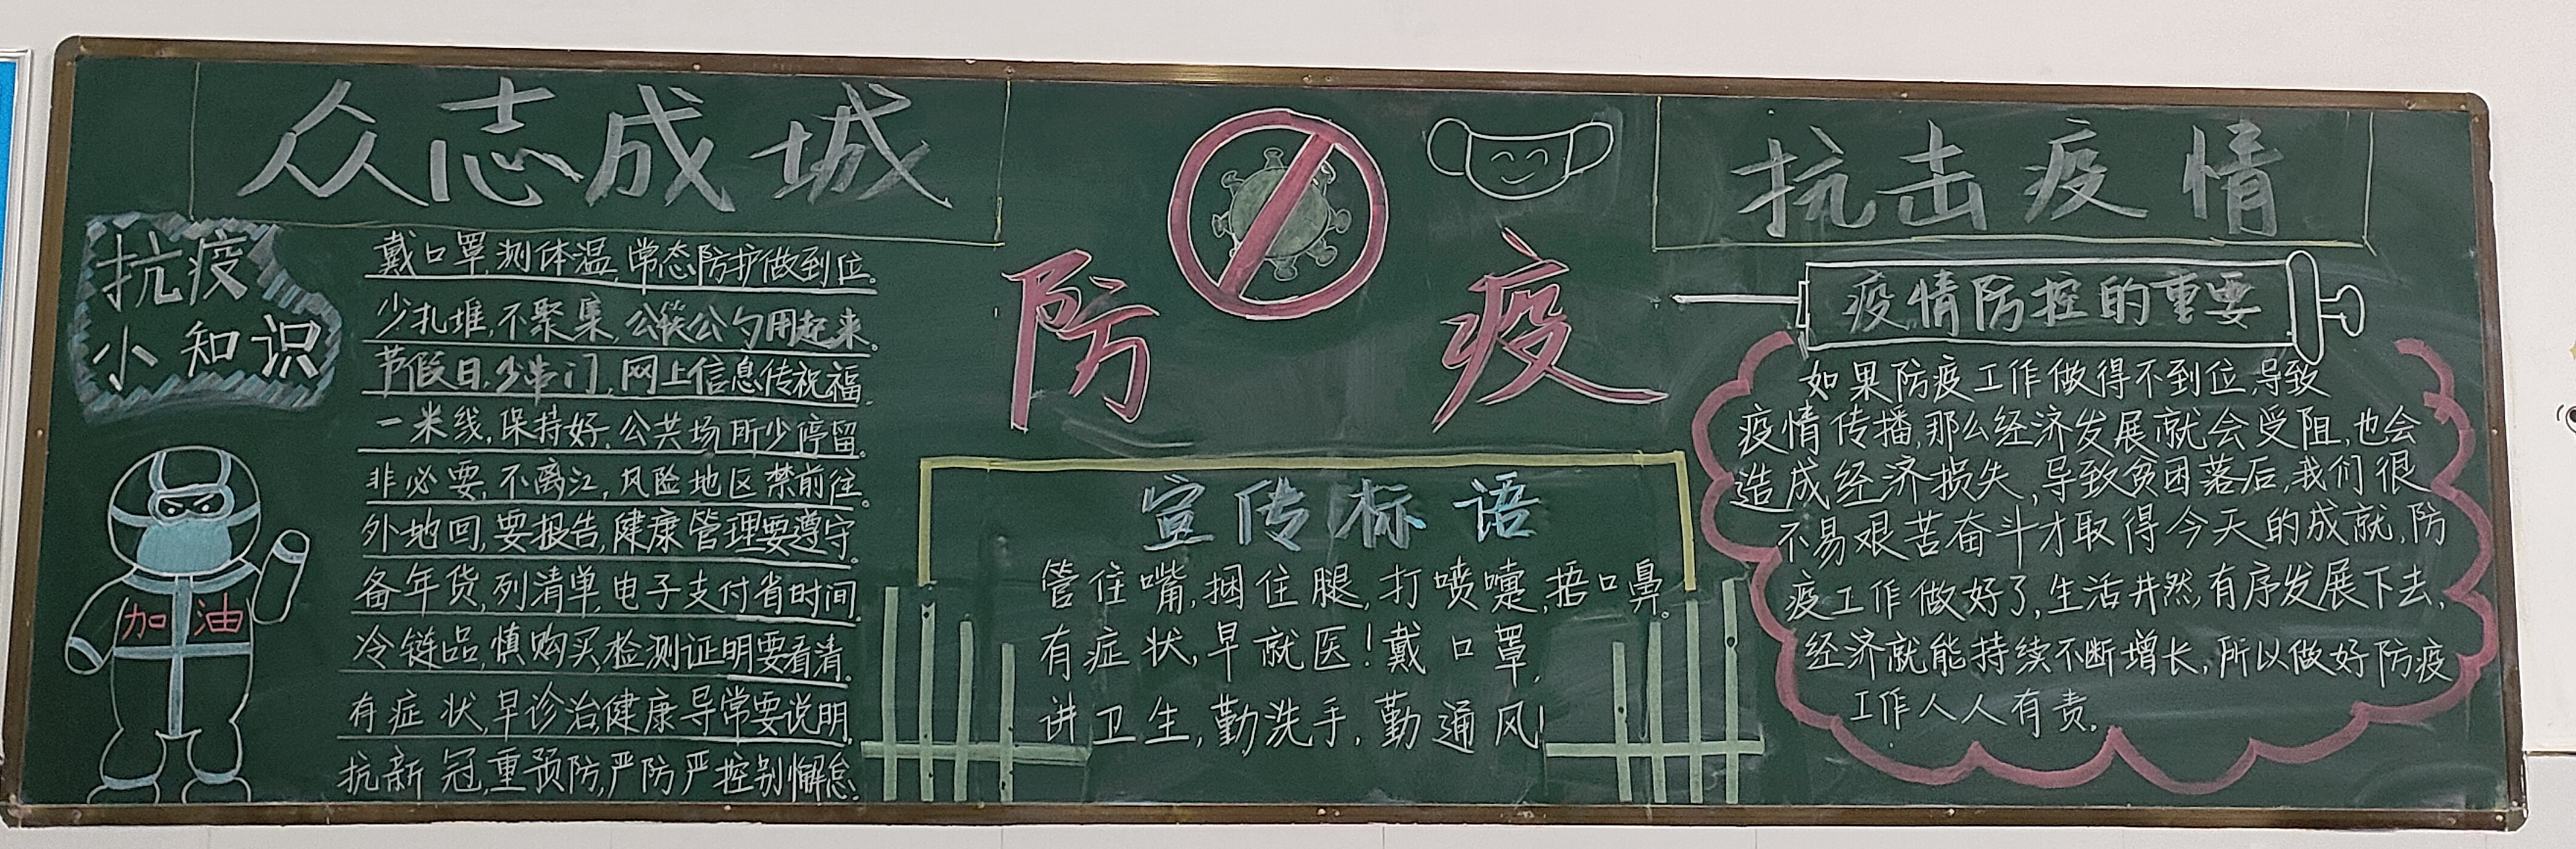 众志成城
抗疫
小知识
戴口罩,测体温,常态防护做到位。
少扎堆,不聚集,公筷公勺用起来。
节假日,少串门,网上信息传祝福。
一米线,保持好,公共场所少停留。
非必要,不离江,风险地区禁前往。
外地回,要报告,健康管理要遵守。
备年货,列清单,电子支付省时间。
冷链品,慎购买,检测证明要看清。
有症状,早诊治,健康异常要说明。
抗新冠,重预防,严防严控别懈怠。
加油
防疫
宣传标语
管住嘴,捆住腿,打喷嚏,捂口鼻。
有症状,早就医!戴口罩,
讲卫生,勤洗手,勤通风!
抗击疫情
疫情防控的重要
如果防疫工作做得不到位,导致
疫情传播,那么经济发展就会受阻,也会
造成经济损失,导致贫困落后,我们很
不易艰苦奋斗才取得今天的成就,防
疫工作做好了,生活井然,有序发展下去,
经济就能持续不断增长,所以做好防疫
工作人人有责。